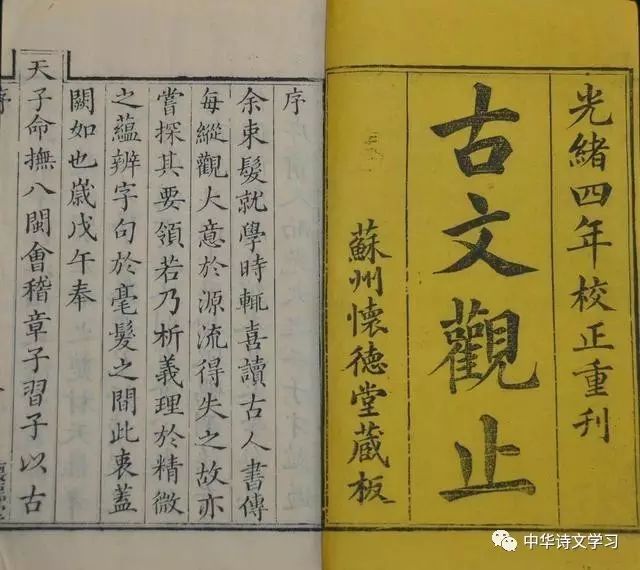 光緒四年校正重刊
古文觀止
蘇州懷德堂蔵板
序
余束髮就學時輒喜讀古人書傳
每縱觀大意於源流得失之故亦
嘗探其要領若乃析義理於精微
之蘊辨字句於毫髮之間此衷蓋
闕如也歲戊午奉
天子命撫八閩會稽章子習子以古
序
中华诗文学习